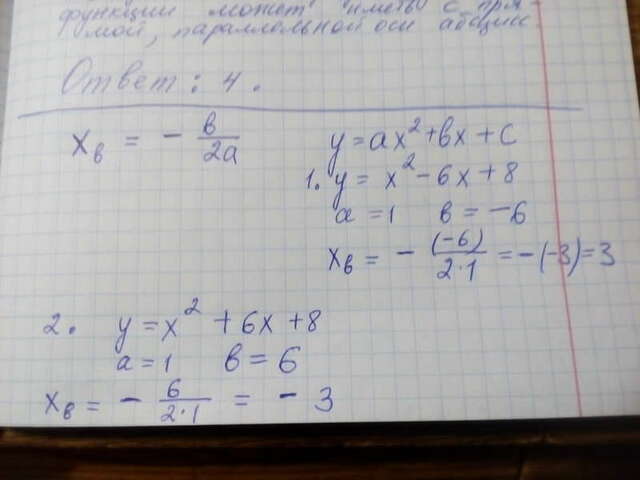 функции может иметь с пря-
мой, параллельной оси абсцисс
Ответ: 4.
xв = - в/2a
y = ax² + вx + c
1. y = x² - 6x + 8
a = 1 в = -6
xв = - (-6)/2·1 = -(-3) = 3
2. y = x² + 6x + 8
a = 1 в = 6
xв = - 6/2·1 = - 3